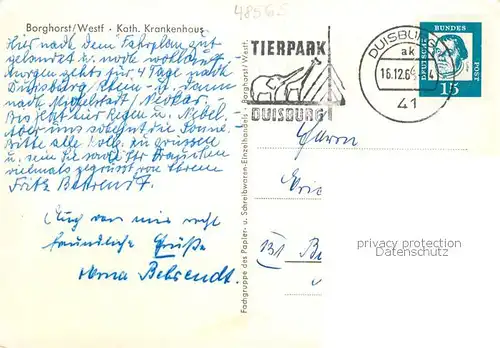 48565
Borghorst/Westf · Kath. Krankenhaus
Hier nach dem Fahrplan gut
gelandet u. noch wohlauf
Morgen gehts für 4 Tage nach
Duisburg/Rhein u. dann
nach Neckar.
Bis jetzt hier Regen u. Nebel.
Aber uns scheint die Sonne.
Bitte alle Koll. zu grüssen
u. sein Sie sowie Ihr
vielmals gegrüsst von Ihrem
Fritz Behrendt.
Auch von mir recht
freundliche Grüße
Behrendt.
Fachgruppe des Papier- u. Schreibwaren-Einzelhandels · Borghorst/Westf.
TIERPARK
DUISBURG
DUISBURG
ak
16.12.6
41
DEUTSCHE
BUNDES
POST
15
Herrn
privacy protection
Datenschutz